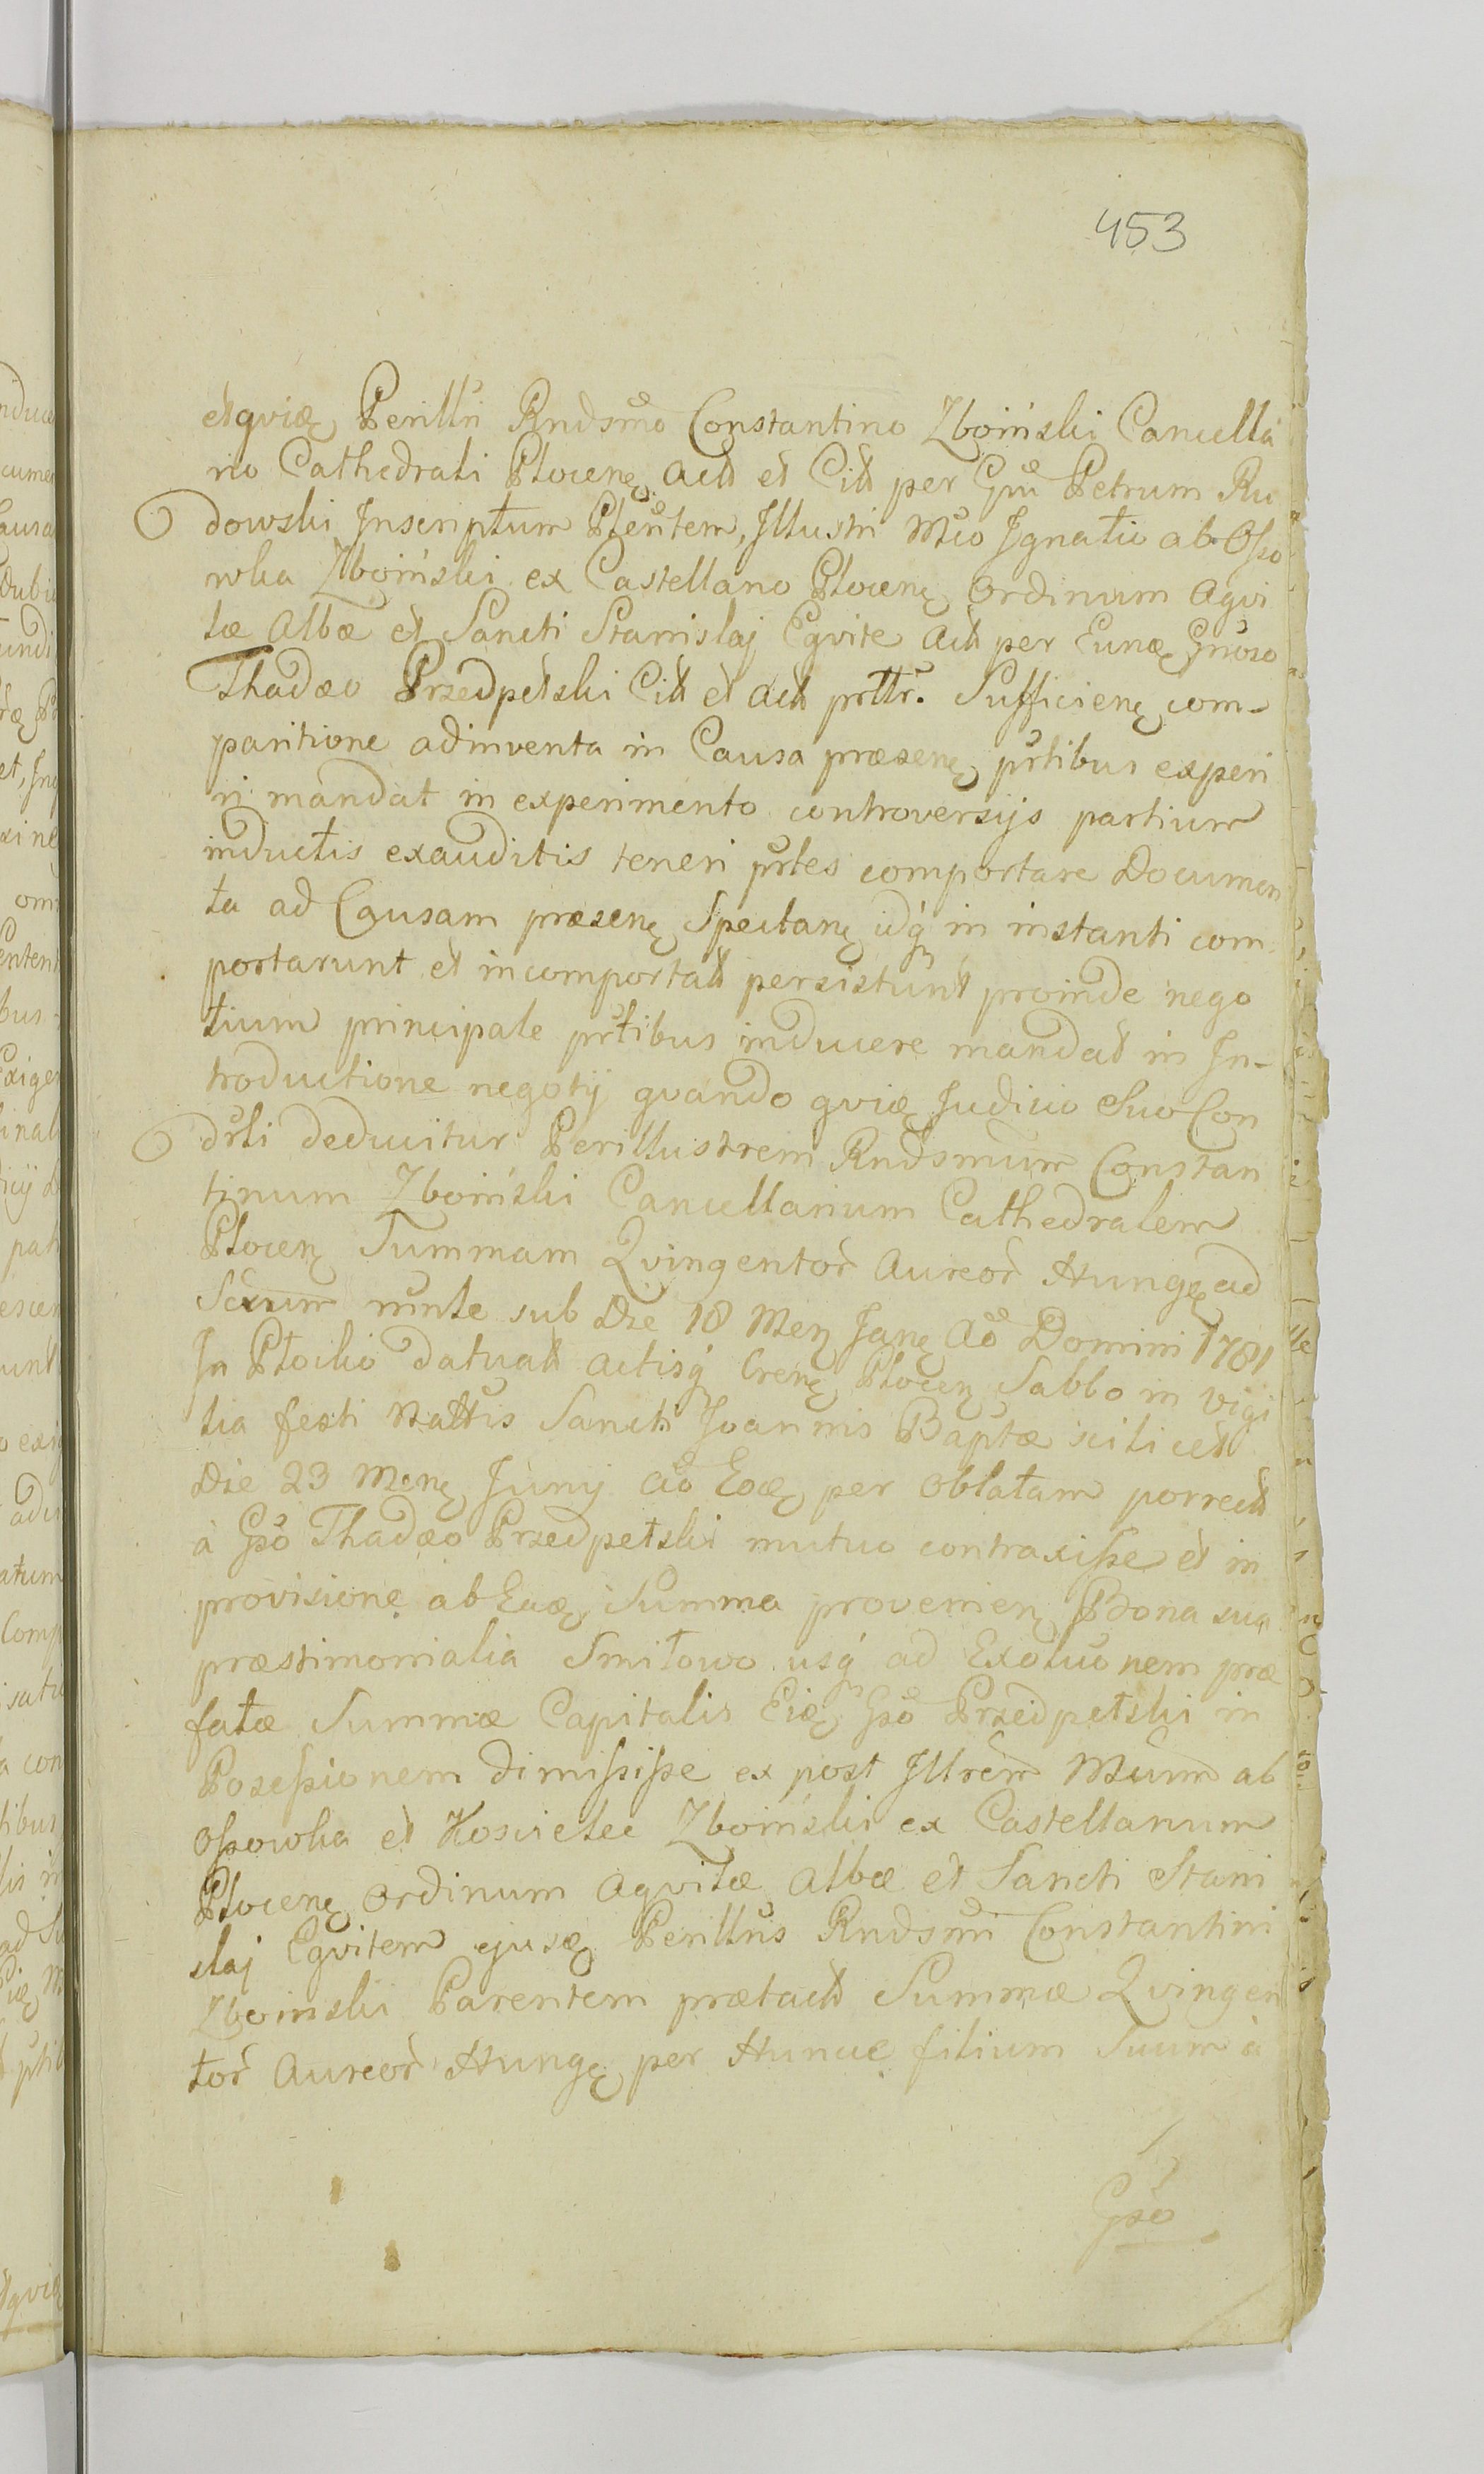 453
etqviæ Perillri Rndsmo Constantino Zboinski Cancella
rio Cathedrali Plocenę Actt et Citt per Gnu Petrum Ru
dowski Inscriptum Plentem, Illustri Mco Ignatio ab Osso
wka Zboinski ex Castellano Plocenę Ordinum Aqvi
læ Albæ et Sancti Stanislaj Eqvite Actt per Eunę Gnoso
Thadæo Przedpełski Citt et Actt prttr. Sufficienę com-
paritione adinventa in Causa præsenę prtibus experi
ri mandat in experimento controversijs partium
inductis exauditis teneri prtes comportare Documen
ta ad Causam præsenę Spectanę idq in instanti com
portarunt et in comportatt persistunt proinde nego
tium principale prtibus inducere mandat in In-
troductione negotij qvando qviæ Judicio Suo Con
drli deducitur Perillustrem Rndsmum Constan
tinum Zboinski Cancellarium Cathedralem
Plocenę Summam Qvingentor Aureor Hungę ad
Scrum mnte sub Die 18 Menę Janę Ao Domini 1781
In Plocko datuatt actisq Crenę Plocenę Sabbo in vigi
lia festi Nattis Sancti Joannis Baptæ scilicet
Die 23 Menę Junij Ao Eoę per Oblatam porrectt
à Gso Thadæo Przedpełski mutuo contraxisse et in
provisionę ab Eaę Summa provenienę Bona sua
præstimonialia Smiłowo usq ad Exolutionem præ
fatæ Summæ Capitalis Eię Gso Przedpełski in
Posessionem dimisisse ex post Illrem Mcum ab
Ossowka et Koscielec Zboinski ex Castellanum
Plocenę Ordinum Aqvilæ Albæ et Sancti Stani
slaj Eqvitem ejusę Perillris Rndsmi Constantini
Zboinski Parentem prætactt Summæ Qvingen
tor Aureor Hungę per Huncę filium Suum à
Gso